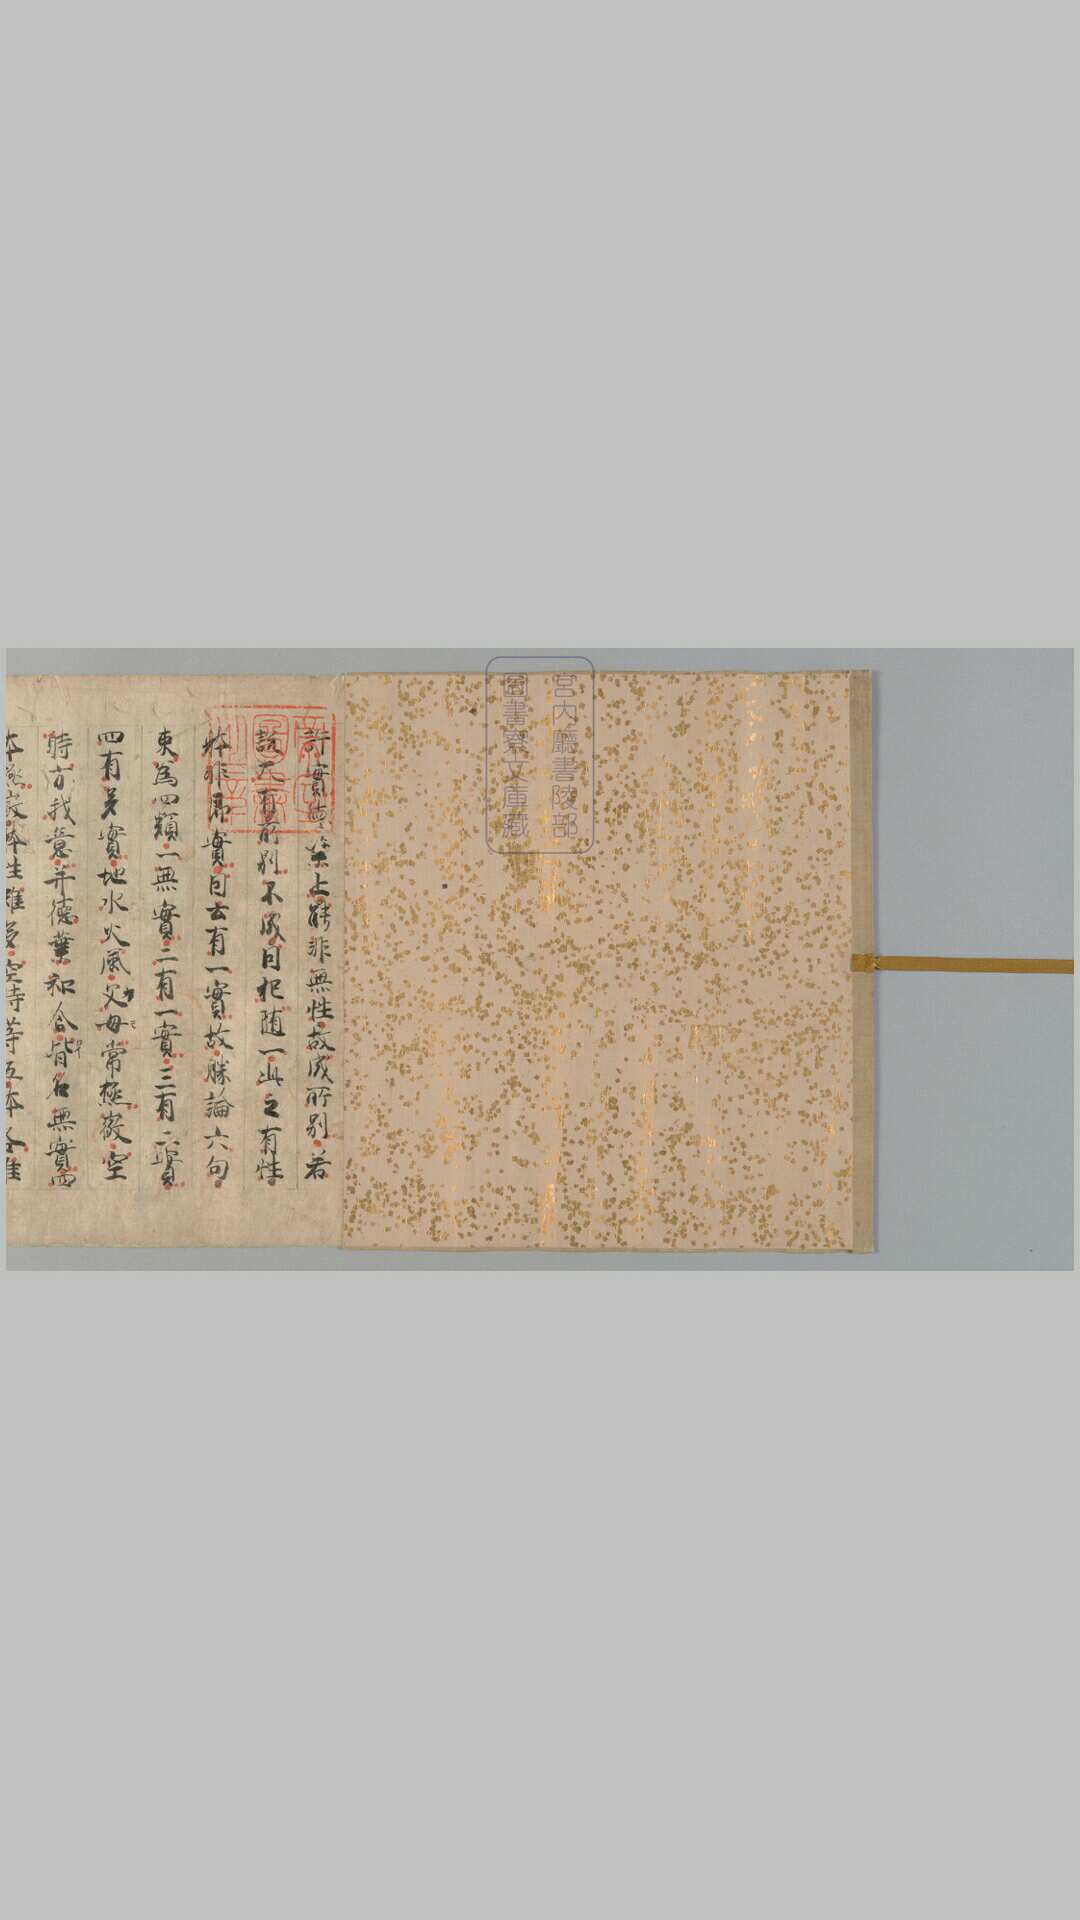 宮内廳書陵部
圖書寮文庫藏
許實德業上能非無性故成所別若
說大有所別不成因犯随一此之有性
躰非即實因云有一實故勝論六句
束為四類一無實二有一實三有二實
四有多實地水火風父母常極微空
時方我意并德業和合皆名無實四
本極微躰性雖多空時等五本